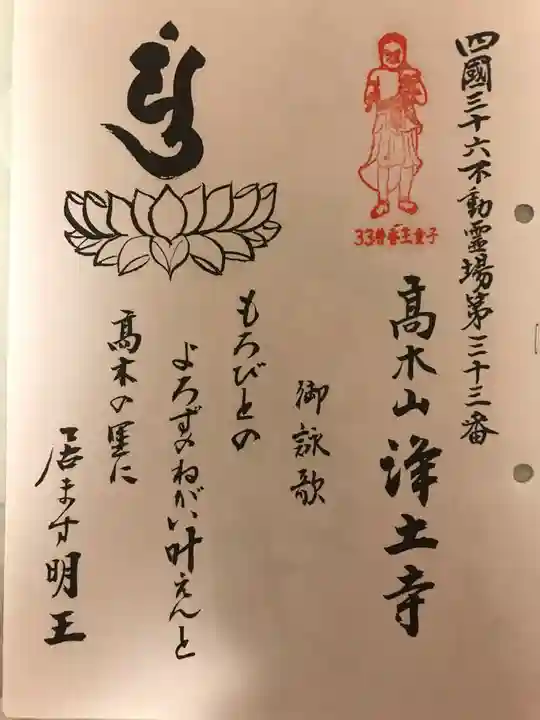 四國三十六不動霊場第三十三番
高木山 浄土寺
御詠歌
もろびとの
よろずのねがい叶えんと
高木の里に
居ます明王